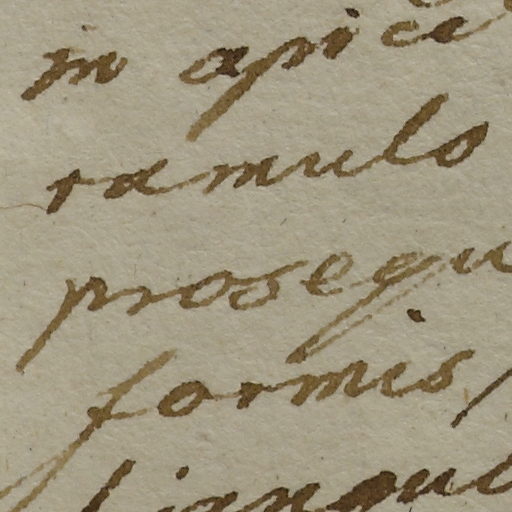 in apice
ramulo
prosequ
formis,